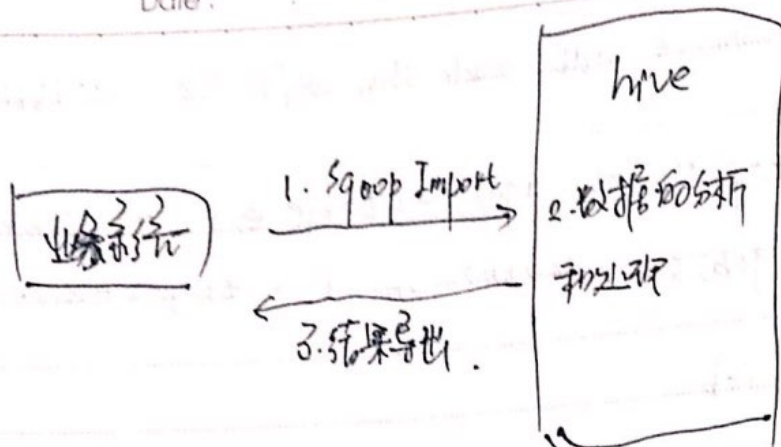 Date:
hive
业务系统
1. Sqoop Import
2. 数据的分析
和处理
3. 结果导出.